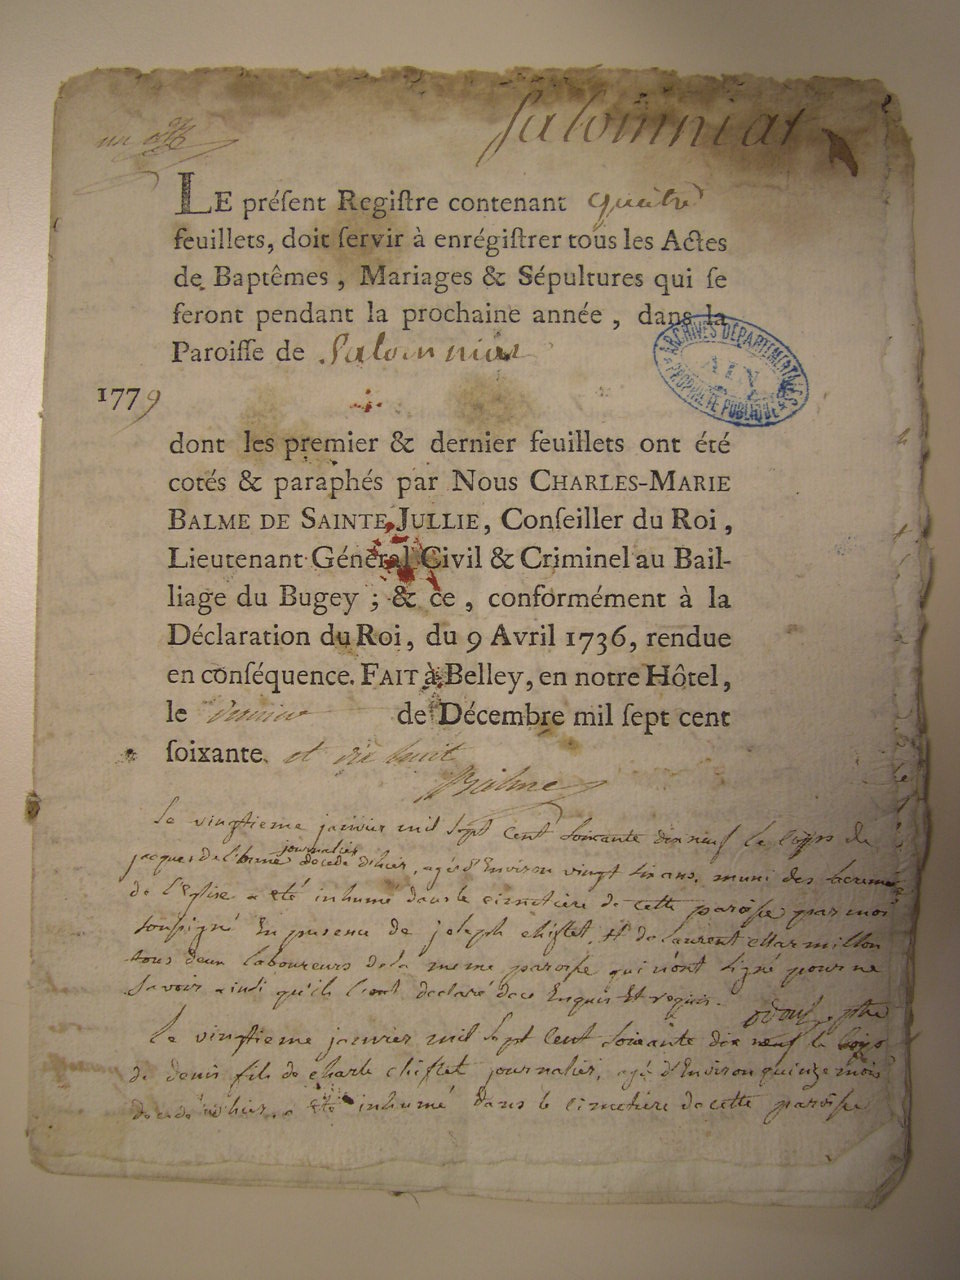 Salonniat
LE préſent Regiſtre contenant quatre
feuillets, doit ſervir à enrégiſtrer tous les Actes
de Baptêmes, Mariages & Sépultures qui ſe
feront pendant la prochaine année, dans la
Paroiſſe de Salonniat
ARCHIVES DÉPARTEMENTALES
AIN
PROPRIÉTÉ PUBLIQUE
1779
dont les premier & dernier feuillets ont été
cotés & paraphés par Nous CHARLES-MARIE
BALME DE SAINTE JULLIE, Conſeiller du Roi,
Lieutenant Général Civil & Criminel au Bail-
liage du Bugey ; & ce, conformément à la
Déclaration du Roi, du 9 Avril 1736, rendue
en conſéquence. FAIT à Belley, en notre Hôtel,
le dernier de Décembre mil ſept cent
ſoixante et dix huit
Balme
Le vingtieme janvier mil sept cent soixante dix neuf le corps de
journalier
jacques decedé d'hier, agé d'Environ vingt six ans, muni des sacremens
de l'Eglise a été inhumé dans le cimetière de cette paroisse par moi
soussigné En presence de joseph chiflet, et de laurent Marmillon
tous deux laboureurs de la meme paroisse qui n'ont signé pour ne
savoir ainsi qu'ils l'ont declaré de ce Enquis Et requis.
Le vingtieme janvier mil sept cent soixante dix neuf le corps
de denis fils de charle chiflet journalier, agé d'Environ quinze mois
decedé d'hier, a été inhumé dans le cimetière de cette paroisse